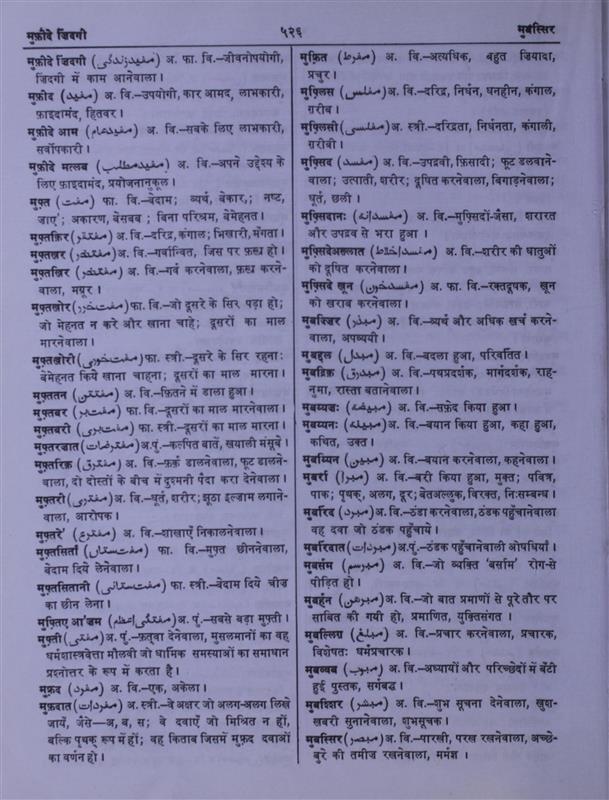 मुफ़ीदे ज़िंदगी
५२६
मुबस्सिर
मुफ़ीदे ज़िंदगी (مفید زندگی) अ. फा. वि.–जीवनोपयोगी,
ज़िंदगी में काम आनेवाला।
मुफ़ीद (مفید) अ. वि.–उपयोगी, कार आमद, लाभकारी,
फ़ाइदामंद, हितकर।
मुफ़ीदे आम (مفید عام) अ. वि.–सबके लिए लाभकारी,
सर्वोपकारी।
मुफ़ीदे मत्लब (مفید مطلب) अ. वि.–अपने उद्देश्य के
लिए फ़ाइदामंद, प्रयोजनानुकूल।
मुफ़्त (مفت) फा. वि.–बेदाम; व्यर्थ, बेकार,; नष्ट,
जाए'; अकारण, बेसबब; बिना परिश्रम, बेमेहनत।
मुफ़्तक़िर (مفتقر) अ. वि.–दरिद्र, कंगाल; भिखारी, मँगता।
मुफ़्तख़र (مفتخر) अ. वि.–गर्वान्वित, जिस पर फ़ख्र हो।
मुफ़्तख़िर (مفتخر) अ. वि.–गर्व करनेवाला, फ़ख्र करने-
वाला, मयूर।
मुफ़्तख़ोर (مفت خور) फा. वि.–जो दूसरे के सिर पड़ा हो;
जो मेहनत न करे और खाना चाहे; दूसरों का माल
मारनेवाला।
मुफ़्तख़ोरी (مفت خوری) फा. स्त्री.–दूसरे के सिर रहना;
बेमेहनत किये खाना चाहना; दूसरों का माल मारना।
मुफ़्ततन (مفتتن) अ. वि.–फ़ितने में डाला हुआ।
मुफ़्तबर (مفت بر) फा. वि.–दूसरों का माल मारनेवाला।
मुफ़्तबरी (مفت بری) फा. स्त्री.–दूसरों का माल मारना।
मुफ़्तरज़ात (مفترضات) अ. पुं.–कल्पित बातें, खयाली मंसूबे।
मुफ़्तरिक़ (مفترق) अ. वि.–फ़र्क़ डालनेवाला, फूट डालने-
वाला, दो दोस्तों के बीच में दुश्मनी पैदा करा देनेवाला।
मुफ़्तरी (مفتری) अ. वि.–धूर्त, शरीर; झूठा इल्ज़ाम लगाने-
वाला, आरोपक।
मुफ़्तरे' (مفترع) अ. वि.–शाखाएँ निकालनेवाला।
मुफ़्तसिताँ (مفت ستاں) फा. वि.–मुफ़्त छीननेवाला,
बेदाम दिये लेनेवाला।
मुफ़्तसितानी (مفت ستانی) फा. स्त्री.–बेदाम दिये चीज़
का छीन लेना।
मुफ़्तिए आ'ज़म (مفتی اعظم) अ. पुं.–सबसे बड़ा मुफ़्ती।
मुफ़्ती (مفتی) अ. पुं.–फ़त्वा देनेवाला, मुसलमानों का वह
धर्मशास्त्रवेत्ता मौलवी जो धार्मिक समस्याओं का समाधान
प्रश्नोत्तर के रूप में करता है।
मुफ़्रद (مفرد) अ. वि.–एक, अकेला।
मुफ़्रदात (مفردات) अ. स्त्री.–वे अक्षर जो अलग-अलग लिखे
जायें, जैसे–अ, ब, स; वे दवाएँ जो मिश्रित न हों,
बल्कि पृथक् रूप में हों; वह किताब जिसमें मुफ़्रद दवाओं
का वर्णन हो।
मुफ़्रित (مفرط) अ. वि.–अत्यधिक, बहुत ज़ियादा,
प्रचुर।
मुफ़्लिस (مفلس) अ. वि.–दरिद्र, निर्धन, धनहीन, कंगाल,
ग़रीब।
मुफ़्लिसी (مفلسی) अ. स्त्री.–दरिद्रता, निर्धनता, कंगाली,
ग़रीबी।
मुफ़्सिद (مفسد) अ. वि.–उपद्रवी, फ़िसादी; फूट डलवाने-
वाला; उत्पाती, शरीर; दूषित करनेवाला, बिगाड़नेवाला;
धूर्त, छली।
मुफ़्सिदानः (مفسدانہ) अ. वि.–मुफ़्सिदों-जैसा, शरारत
और उपद्रव से भरा हुआ।
मुफ़्सिदेअख़्लात (مفسد اخلاط) अ. वि.–शरीर की धातुओं
को दूषित करनेवाला।
मुफ़्सिदे ख़ून (مفسد خون) अ. फा. वि.–रक्तदूषक, ख़ून
को खराब करनेवाला।
मुबज़्ज़िर (مبذر) अ. वि.–व्यर्थ और अधिक खर्च करने-
वाला, अपव्ययी।
मुबद्दल (مبدل) अ. वि.–बदला हुआ, परिवर्तित।
मुबद्रिक़ (مبدرق) अ. वि.–पथप्रदर्शक, मार्गदर्शक, राह-
नुमा, रास्ता बतानेवाला।
मुबय्यज़ः (مبیضہ) अ. वि.–सफ़ेद किया हुआ।
मुबय्यनः (مبینہ) अ. वि.–बयान किया हुआ, कहा हुआ,
कथित, उक्त।
मुबय्यिन (مبین) अ. वि.–बयान करनेवाला, कहनेवाला।
मुबर्रा (مبرا) अ. वि.–बरी किया हुआ, मुक्त; पवित्र,
पाक; पृथक्, अलग, दूर; बेतअल्लुक़, विरक्त, निःसम्बन्ध।
मुबर्रिद (مبرد) अ. वि.–ठंडा करनेवाला, ठंडक पहुँचानेवाला
वह दवा जो ठंडक पहुँचाये।
मुबर्रिदात (مبردات) अ. पुं.–ठंडक पहुँचानेवाली ओषधियाँ।
मुबर्सम (مبرسم) अ. वि.–जो व्यक्ति 'बर्साम' रोग-से
पीड़ित हो।
मुबर्हन (مبرہن) अ. वि.–जो बात प्रमाणों से पूरे तौर पर
साबित की गयी हो, प्रमाणित, युक्तिसंगत।
मुबल्लिग़ (مبلغ) अ. वि.–प्रचार करनेवाला, प्रचारक,
विशेषतः धर्मप्रचारक।
मुबव्वब (مبوب) अ. वि.–अध्यायों और परिच्छेदों में बँटी
हुई पुस्तक, सर्गबद्ध।
मुबश्शिर (مبشر) अ. वि.–शुभ सूचना देनेवाला, खुश-
ख़बरी सुनानेवाला, शुभसूचक।
मुबस्सिर (مبصر) अ. वि.–पारखी, परख रखनेवाला, अच्छे-
बुरे की तमीज़ रखनेवाला, मर्मज्ञ।